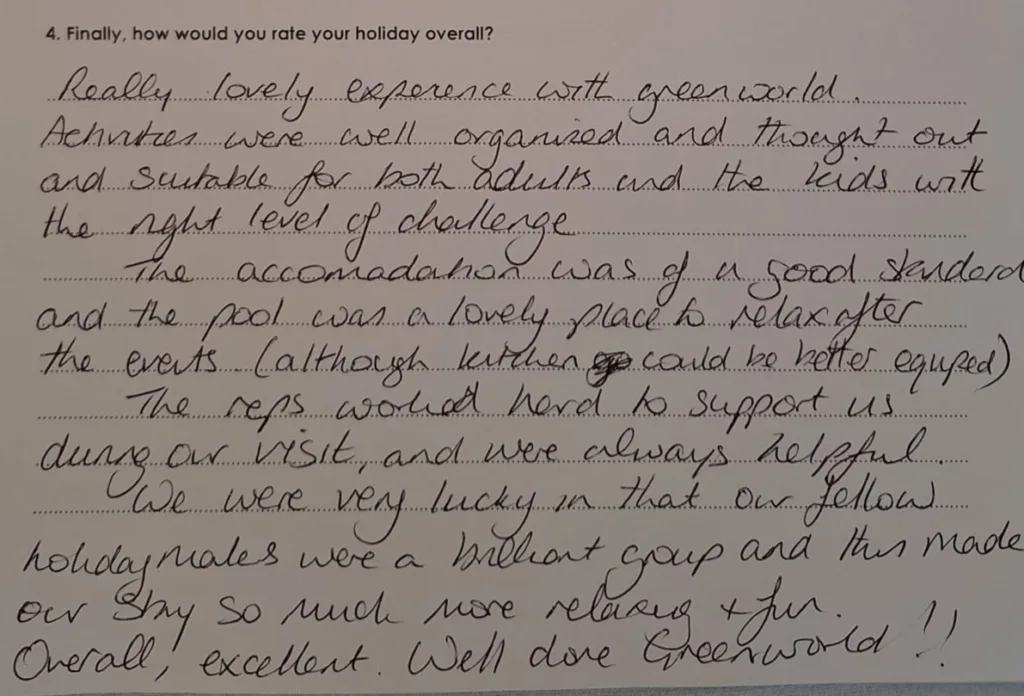 4. Finally, how would you rate your holiday overall?
Really lovely experence with greenworld.
Activities were well organised and thought out
and suitable for both adults and the kids with
the right level of challenge
The accomadation was of a good standard
and the pool was a lovely place to relax after
the events (although kitchen could be better equiped)
The reps worked hard to support us
during our visit, and were always helpful.
We were very lucky in that our fellow
holidaymakes were a brilliant group and this made
our stay so much more relaxing + fun.
Overall, excellent. Well done Greenworld!!